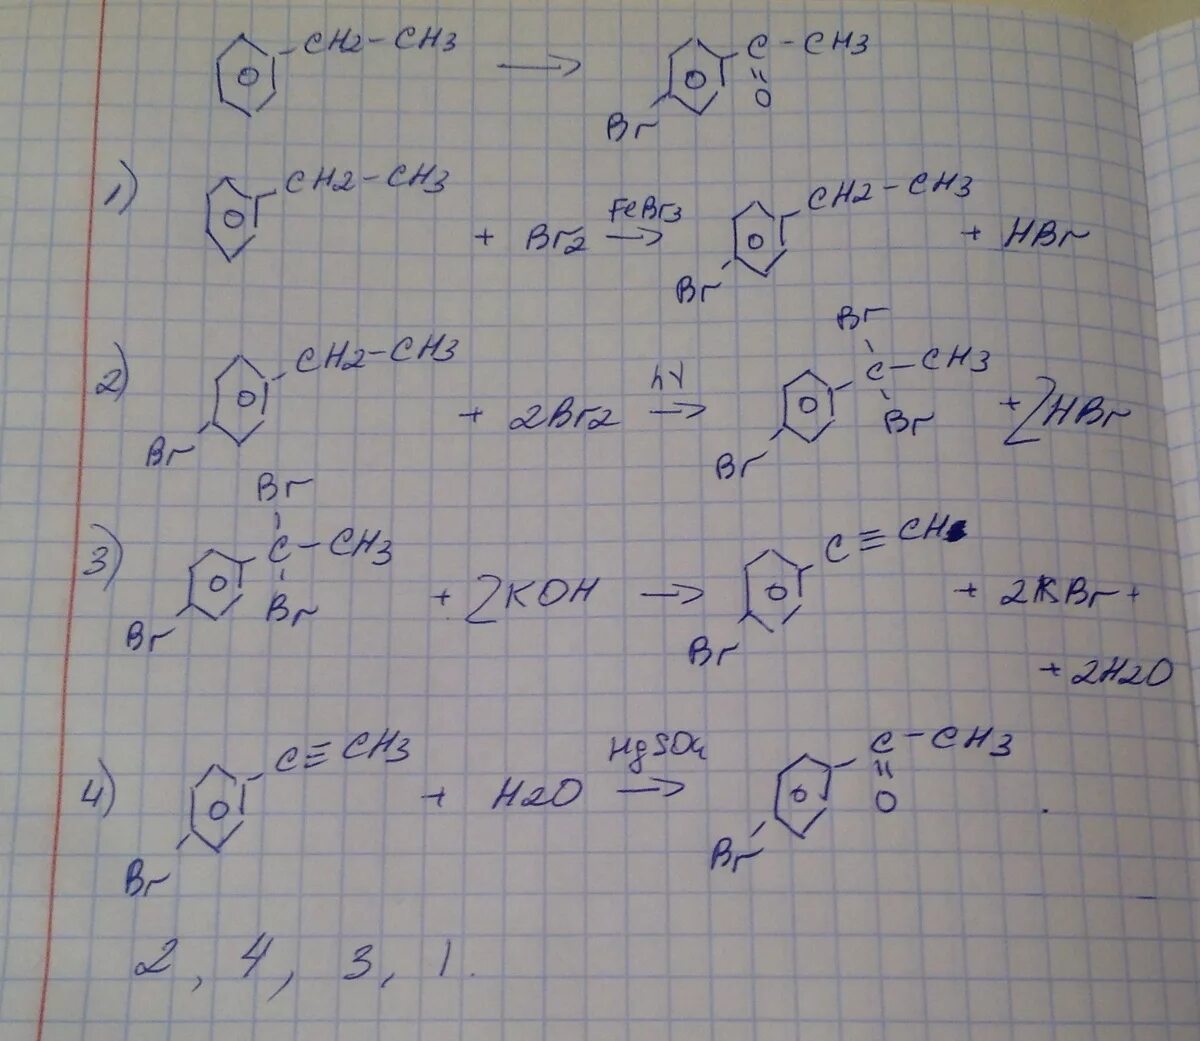 CH2-CH3 → C-CH3
O
Br
1) CH2-CH3 + Br2 FeBr3 → CH2-CH3 + HBr
Br
2) CH2-CH3 + 2Br2 hν → Br C-CH3 + 2HBr
Br Br Br
3) Br C-CH3 + 2KOH → C≡CH + 2KBr +
Br Br Br
+ 2H2O
4) C≡CH3 + H2O HgSO4 → C-CH3
O
Br Br
2, 4, 3, 1.